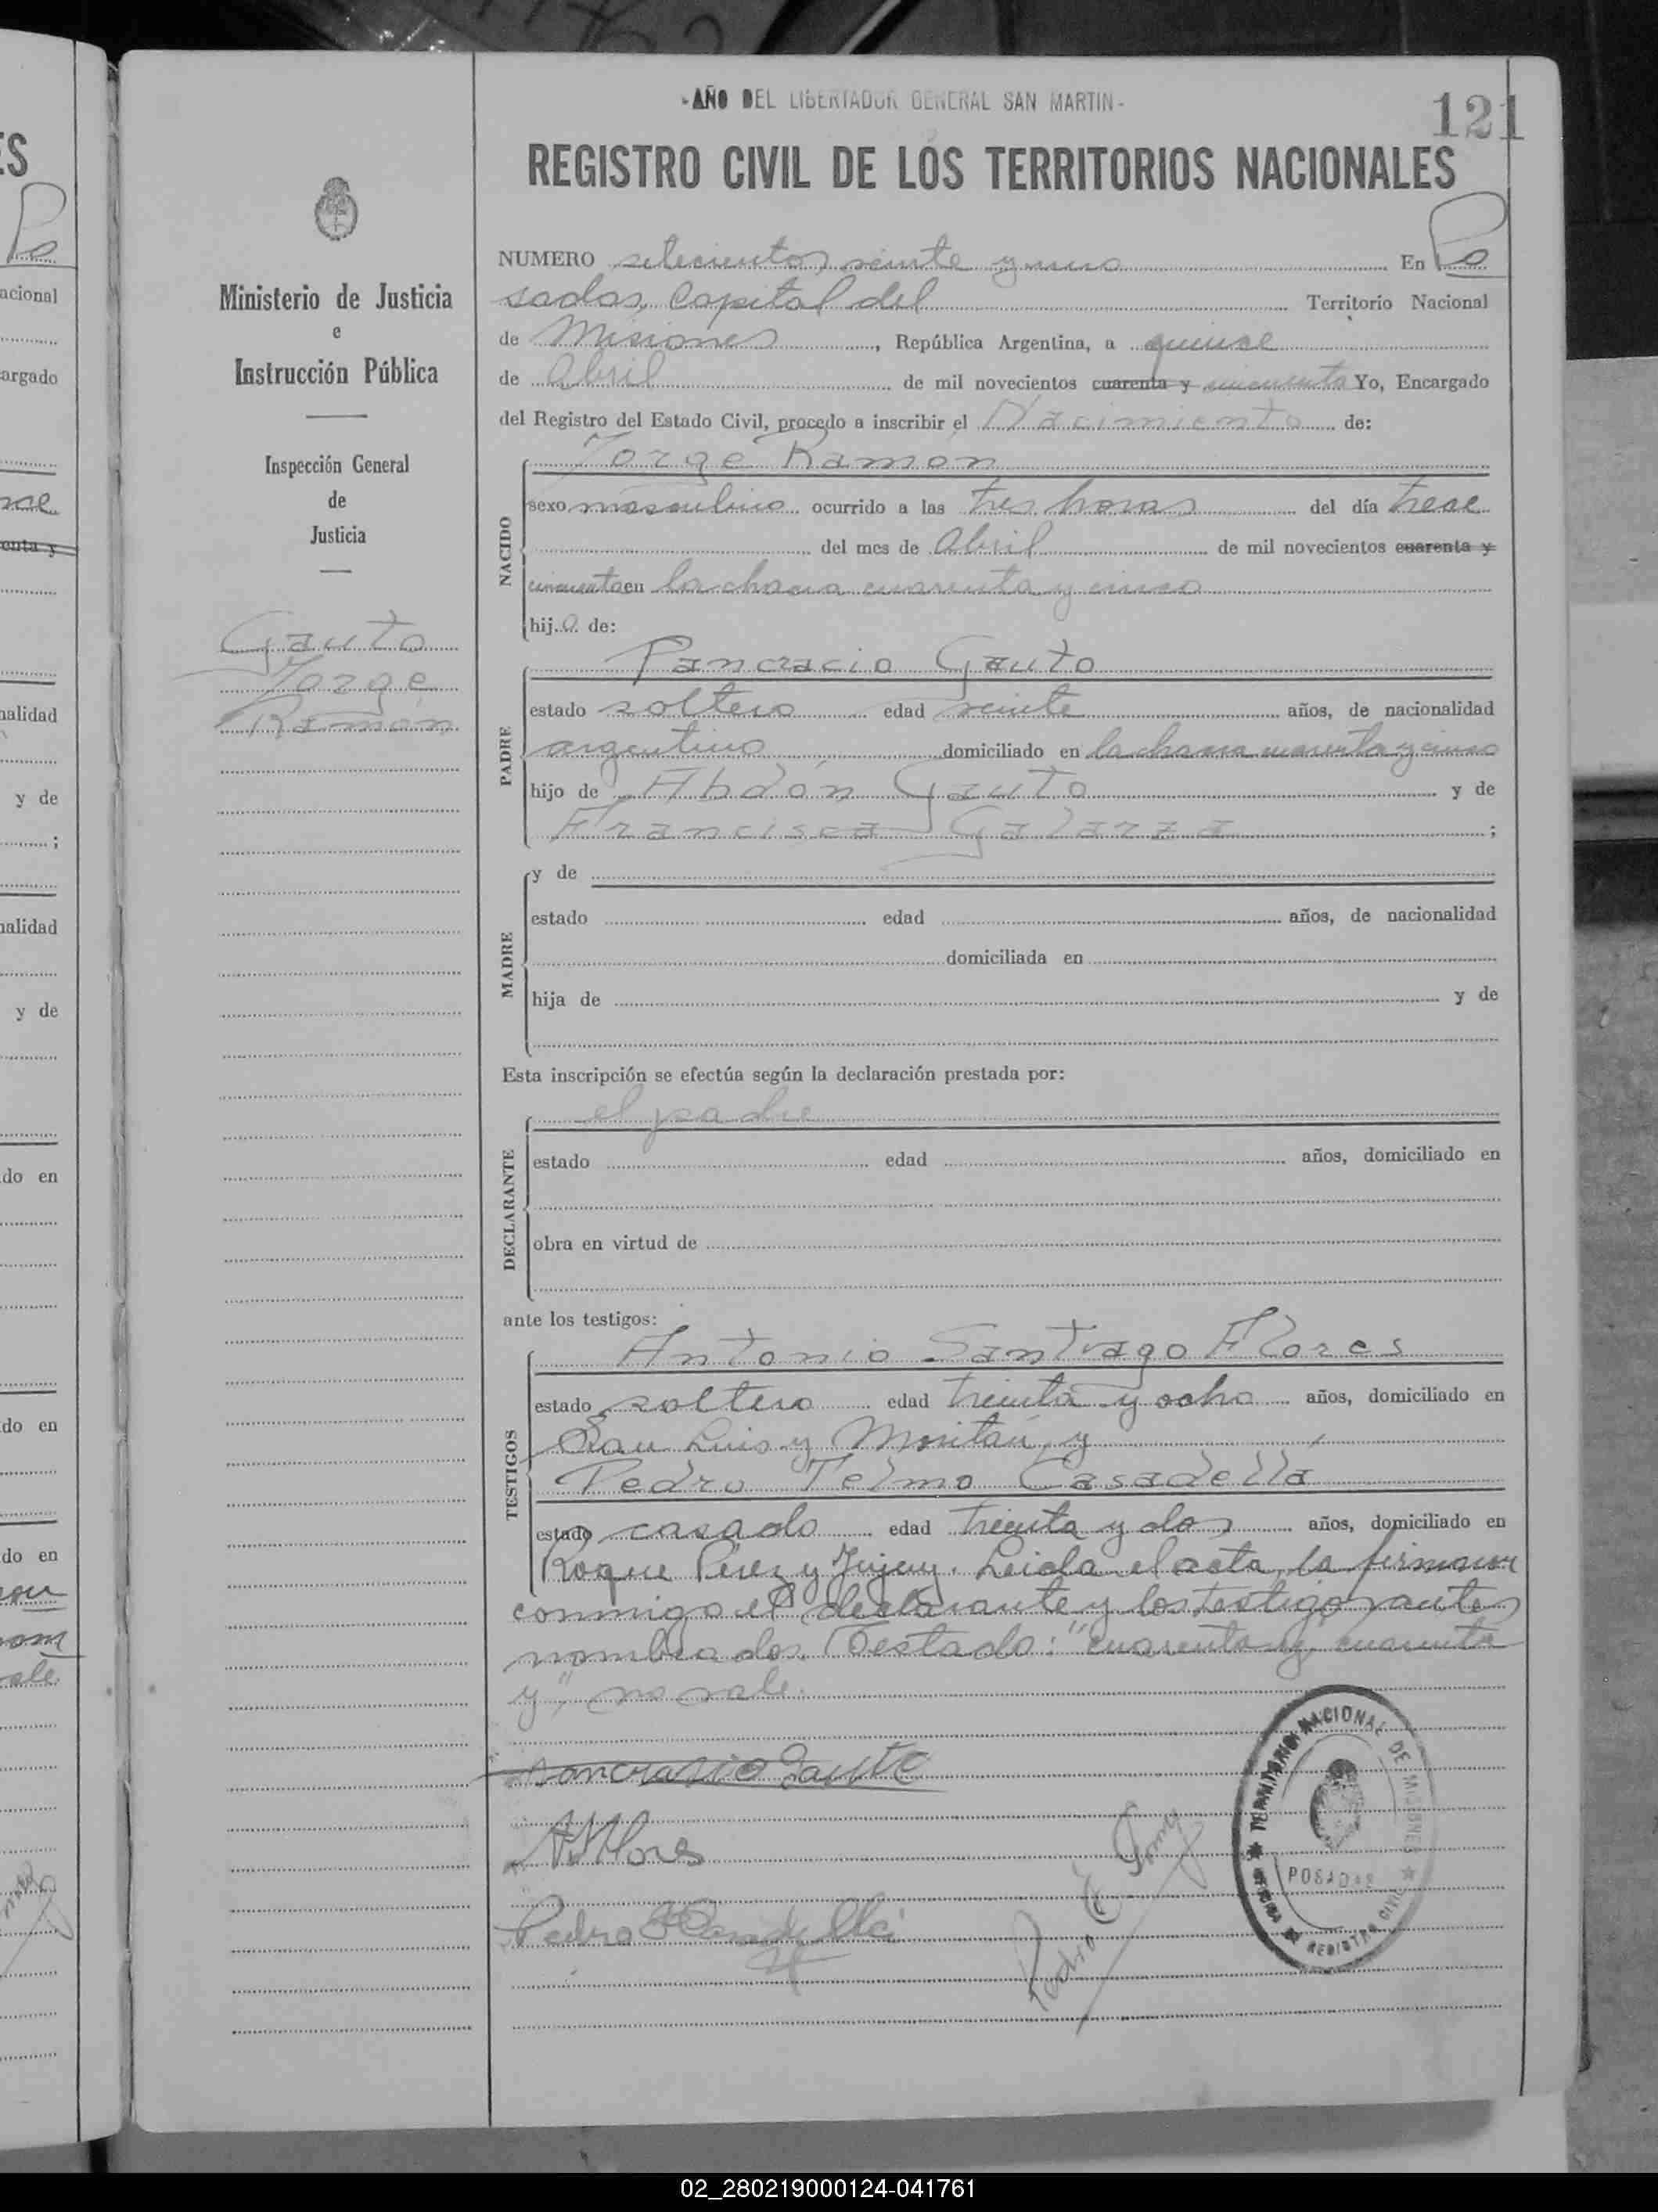 -AÑO DEL LIBERTADOR GENERAL SAN MARTIN-
121
REGISTRO CIVIL DE LOS TERRITORIOS NACIONALES
Ministerio de Justicia
e
Instrucción Pública
Inspección General
de
Justicia
Gauto
Jorge
Ramón
NUMERO setecientos veinte y uno En Po
sadas, Capital del Territorio Nacional
de Misiones, República Argentina, a quince
de Abril de mil novecientos cuarenta y cincuenta Yo, Encargado
del Registro del Estado Civil, procedo a inscribir el Nacimiento de:
Jorge Ramón
NACIDO
sexo masculino ocurrido a las tres horas del día trece
del mes de Abril de mil novecientos cuarenta y
cincuenta en la chacra cuarenta y cinco
hij.o. de:
Pancracio Gauto
PADRE
estado soltero edad veinte años, de nacionalidad
argentino domiciliado en la chacra cuarenta y cinco
hijo de Abdón Gauto y de
Francisca Galarza ;
MADRE
y de
estado edad años, de nacionalidad
domiciliada en
hija de y de
Esta inscripción se efectúa según la declaración prestada por:
el padre
DECLARANTE
estado edad años, domiciliado en
obra en virtud de
ante los testigos:
Antonio Santiago Flores
TESTIGOS
estado soltero edad treinta y ocho años, domiciliado en
San Luis y Moritán, y
Pedro Telmo Casadellá
estado casado edad treinta y dos años, domiciliado en
Roque Pérez y Jujuy. Leida el acta, la firmaron
conmigo el declarante y los testigos antes
nombrados. Testado: "cuarenta y, cuarenta
y", no vale.
Pancrasio Gauto
Flores
Pedro T Casadellá
Pedro E
TERRITORIO NACIONAL DE MISIONES
POSADAS
OFICINA DE REGISTRO CIVIL
ES
Po
acional
argado
enta y
nalidad
y de
;
nalidad
y de
do en
do en
do en
02_280219000124-041761